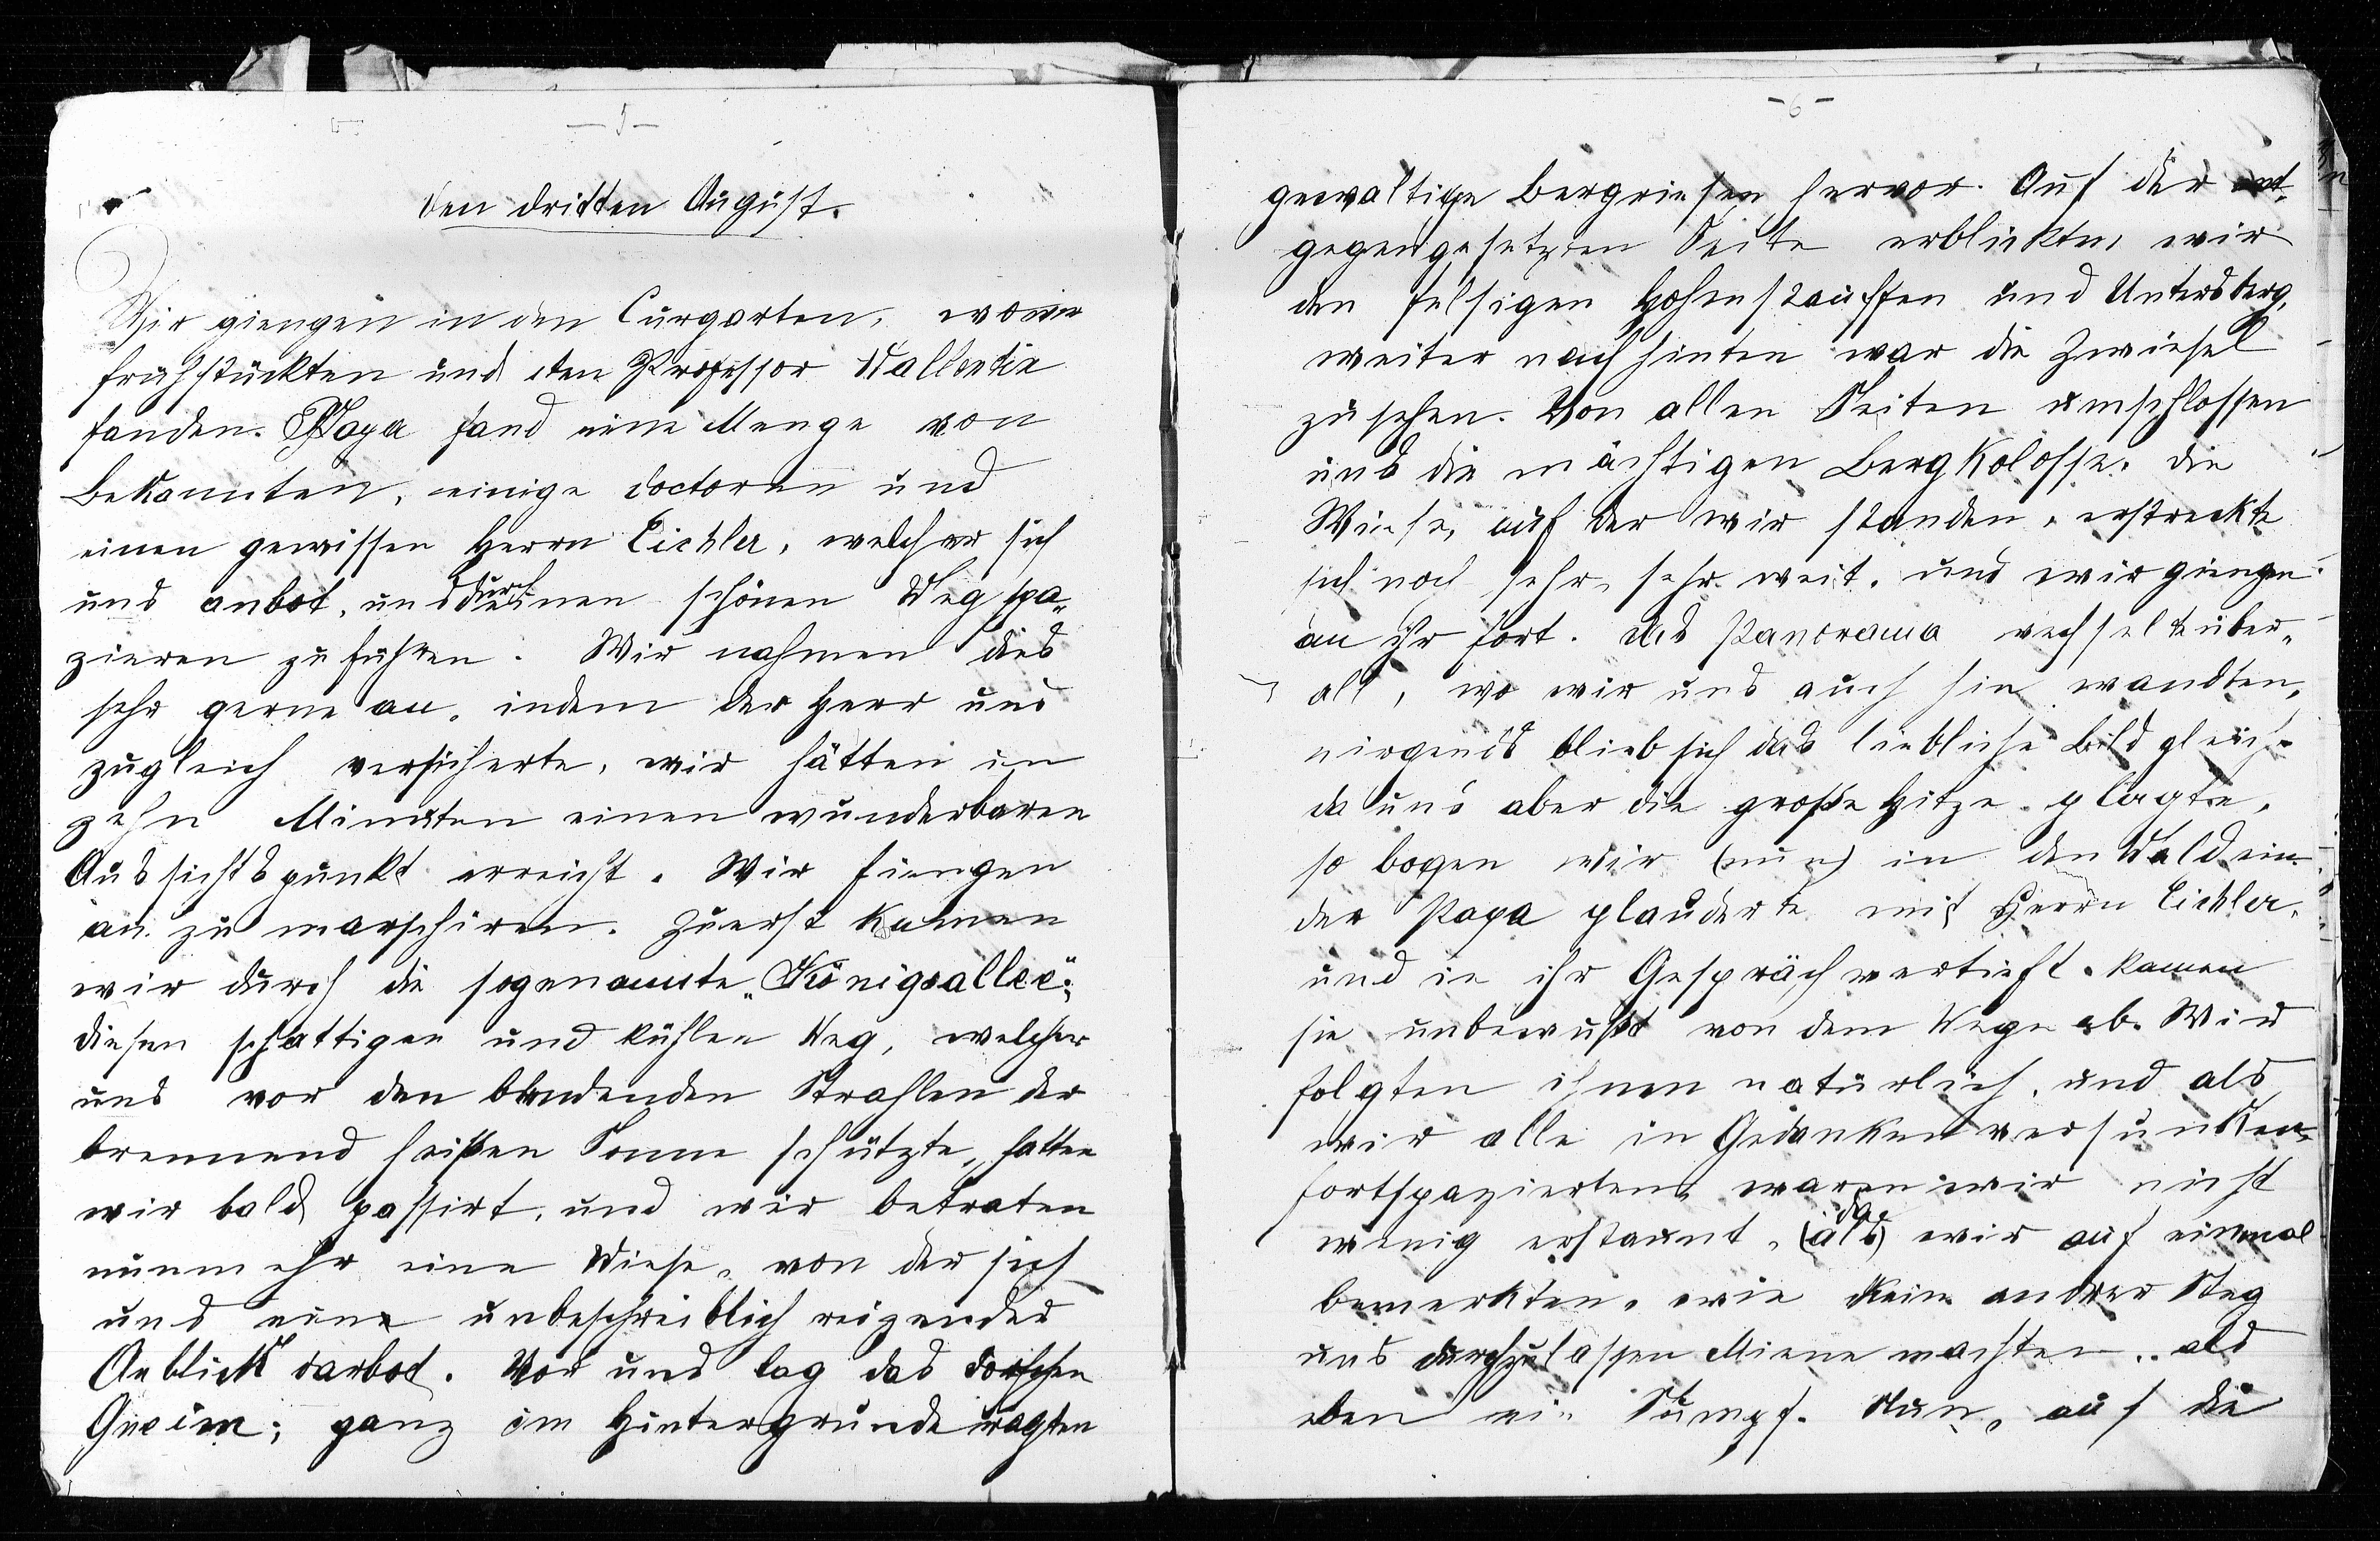 - 5 -
den dritten August.
Wir giengen in den Curgarten, wo wir
frühstückten und den Professor Wallentin
fanden. Papa fand eine Menge von
Bekannten, einige Doctoren und
einen gewissen Herrn Eichler, welcher sich
uns anbot, uns durch einen schönen Weg spa-
zieren zu führen. Wir nahmen dies
sehr gerne an, indem der Herr uns
zugleich versicherte, wir hätten in
zehn Minuten einen wunderbaren
Aussichtspunkt erreicht. Wir fiengen
an zu marschiren. Zuerst kamen
wir durch die sogenannte „Königsallee";
diesen schattigen und kühlen Weg, welcher
uns vor den blendenden Strahlen der
brennend heißen Sonne schützte, hatten
wir bald passirt, und wir betraten
nunmehr eine Wiese, von der sich
uns ein unbeschreiblich reizender
Anblick darbot. Vor uns lag das Dörfchen
Gmein; ganz im Hintergrunde ragten
- 6 -
gewaltige Bergriesen hervor. Auf der ent-
gegengesetzten Seite erblickten wir
den felsigen Hohenstauffen und Untersberg,
weiter nach hinten war die Zwiesel
zu sehen. Von allen Seiten umschlossen
uns die mächtigen Bergkolosse. die
Wiese, auf der wir standen, erstreckte
sich noch sehr, sehr weit, und wir giengen
an ihr fort. das Panorama wechselte über-
all, wo wir uns auch hin wandten,
nirgends blieb sich das liebliche Bild gleich.
da uns aber die große Hitze plagte,
so bogen wir (nun) in den Wald ein.
der Papa plauderte mit Herrn Eichler,
und in ihr Gespräch vertieft, kamen
sie unbewußt von dem Wege ab. Wir
folgten ihnen natürlich, und als
wir alle in Gedanken versunken,
fortspazierten, waren wir nicht
wenig erstaunt, (als) da wir auf einmal
bemerkten, wie kein andrer Steg
uns durchzulassen Miene machte, als
eben ein Sumpf. Nun, auf die